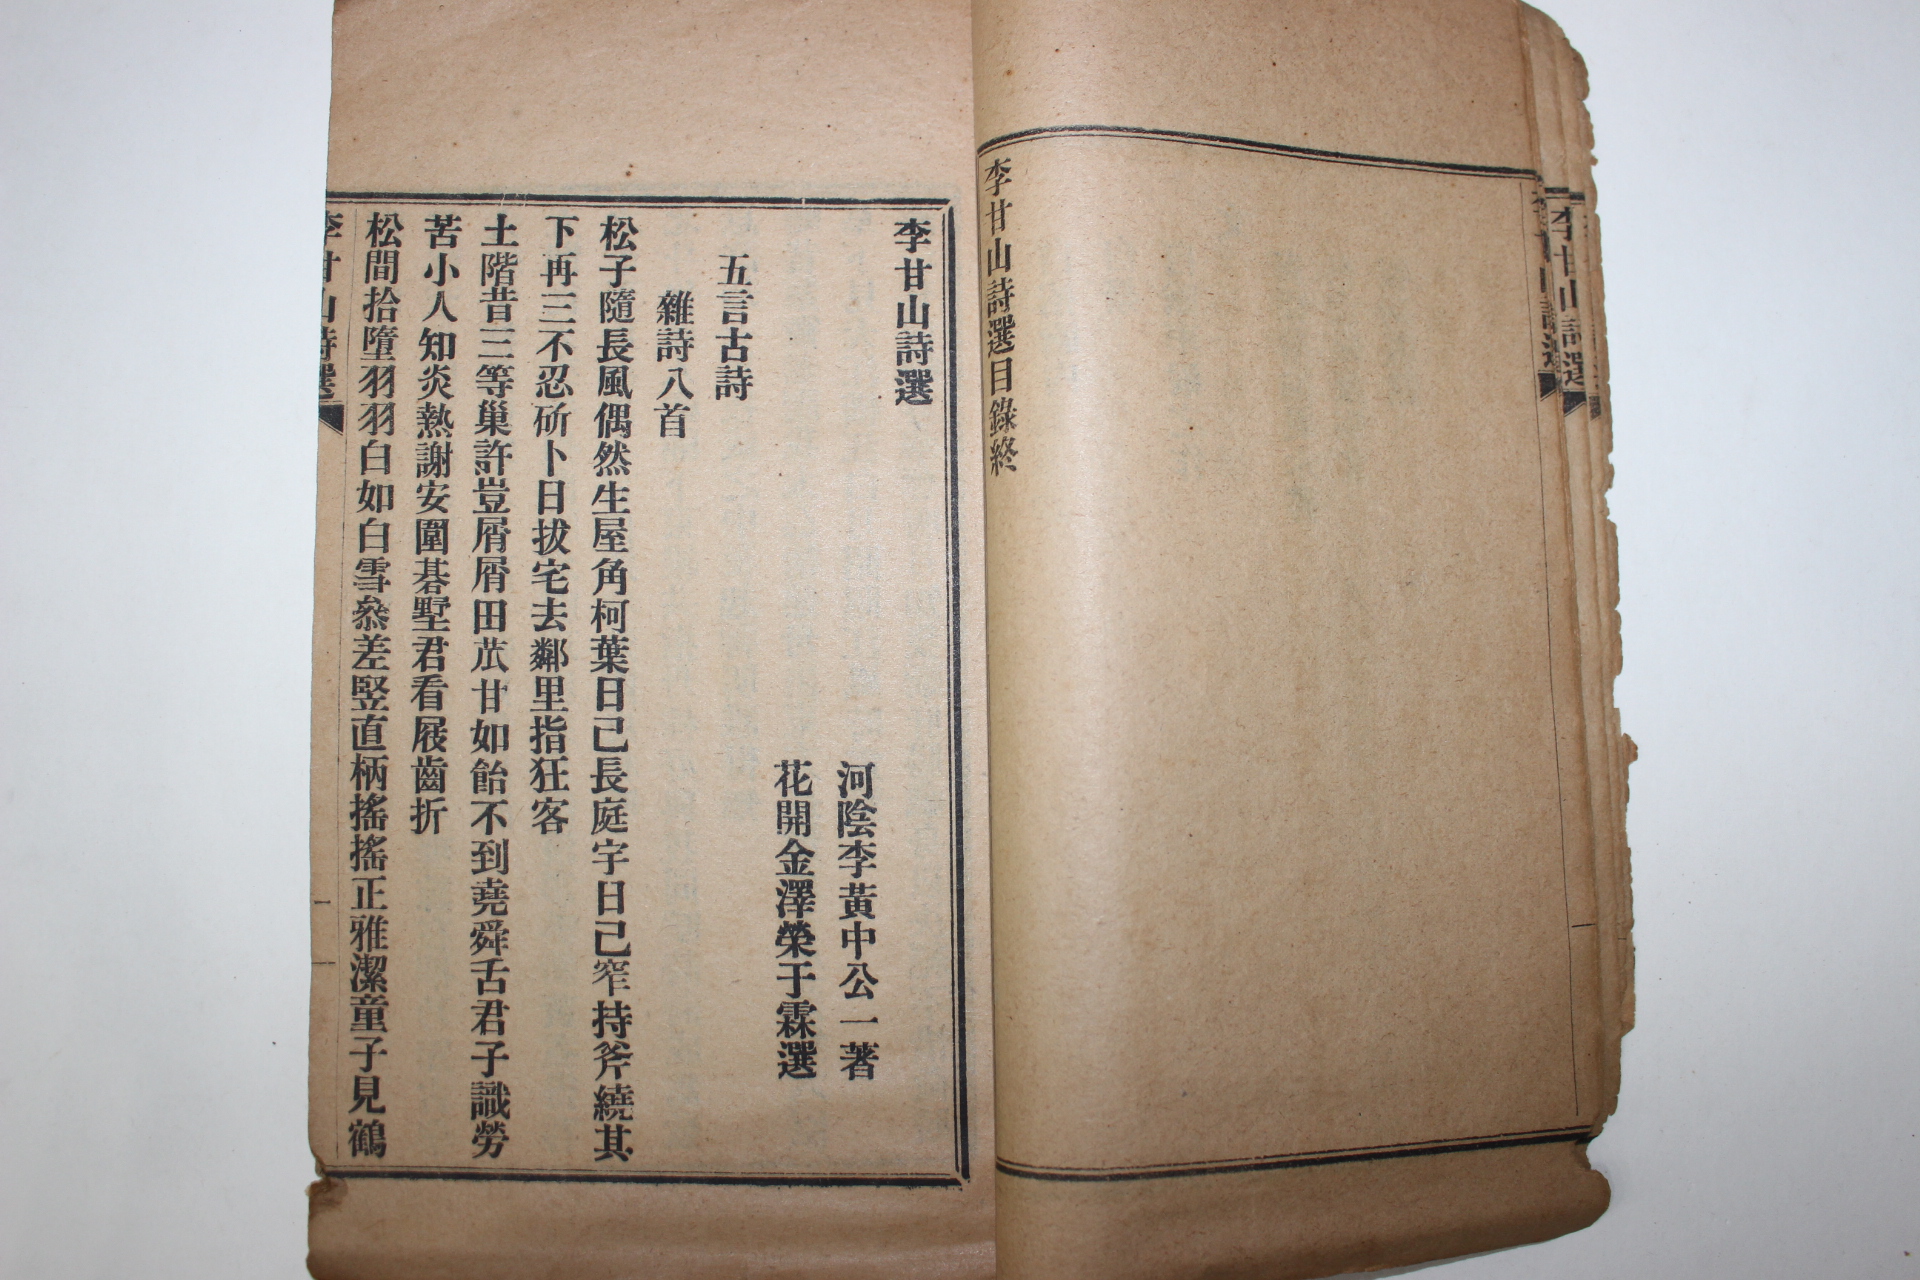 李甘山詩選目錄終
李甘山詩選
河陰李黃中公一著
花開金澤榮于霖選
五言古詩
雜詩八首
松子隨長風偶然生屋角柯葉日己長庭宇日己窄持斧繞其
下再三不忍斫卜日拔宅去鄰里指狂客
土階昔三等巢許豈屑屑田苽甘如飴不到堯舜舌君子識勞
苦小人知炎熱謝安圍碁墅君看屐齒折
松間拾墮羽羽白如白雪叅差竪直柄搖搖正雅潔童子見鶴
李甘山詩選